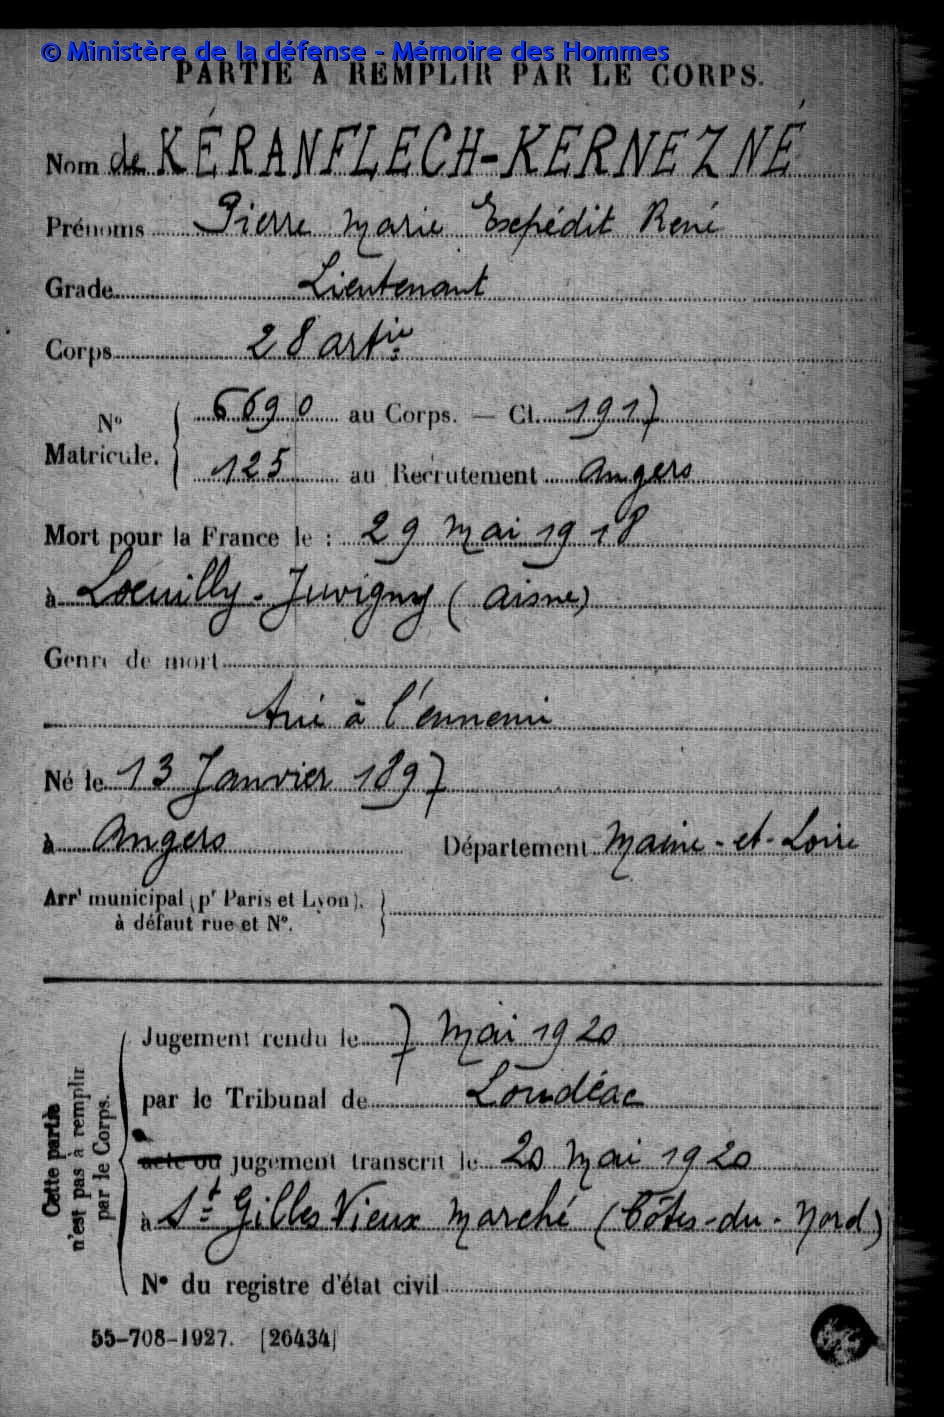 © Ministère de la défense - Mémoire des Hommes
PARTIE A REMPLIR PAR LE CORPS.
Nom de KÉRANFLECH-KERNEZNÉ
Prénoms Pierre Marie Expédit René
Grade Lieutenant
Corps 28 artie
No Matricule. 6690 au Corps. — Cl. 1917
125 au Recrutement Angers
Mort pour la France le : 29 Mai 1918
à Loeuilly-Juvigny (Aisne)
Genre de mort
Tué à l'ennemi
Né le 13 Janvier 1897
à Angers Département Maine-et-Loire
Arrt municipal (pr Paris et Lyon),
à défaut rue et No.
Cette partie
n'est pas à remplir
par le Corps.
Jugement rendu le 7 Mai 1920
par le Tribunal de Loudéac
acte ou jugement transcrit le 20 Mai 1920
à St Gilles Vieux Marché (Côtes-du-Nord)
No du registre d'état civil
55-708-1927. [26434]